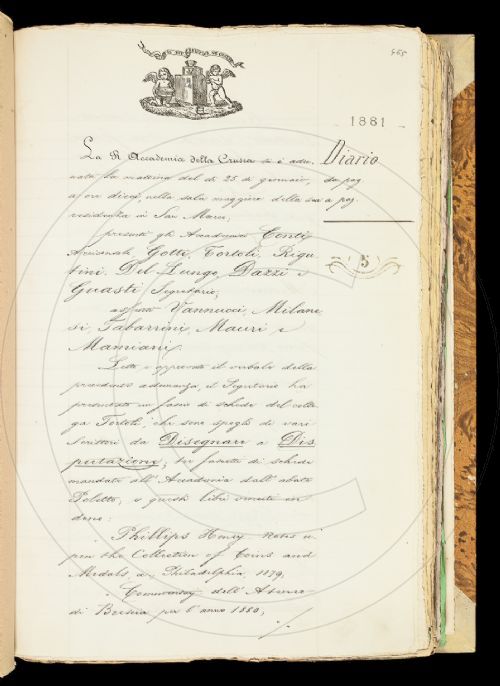 565
1881
Diario
da pag
a pag.
5
La R. Accademia della Crusca si è adu-
nata la mattina del dì 25 di gennaio,
a ore dieci, nella sala maggiore della sua
residenza in San Marco;
presenti gli Accademici Conti
Arciconsolo, Gotti, Tortoli, Rigu-
tini, Del Lungo, Dazzi e
Guasti Segretario;
assenti Vannucci, Milane-
si, Tabarrini, Mauri e
Mamiani.
Letto e approvato il verbale della
precedente adunanza, il Segretario ha
presentato un fascio di schede del colle-
ga Tortoli, che sono spogli di vari
Scrittori da Disegnare a Dis-
putazione; di schede
mandate all'Accademia dall'abate
Poletto, e questi libri venuti in
dono:
Phillips Henry Notes u-
pon the Collection of Coins and
Medals, Philadelphia, 1879;
Commentarj dell'Ateneo
di Brescia per l'anno 1880;
./.